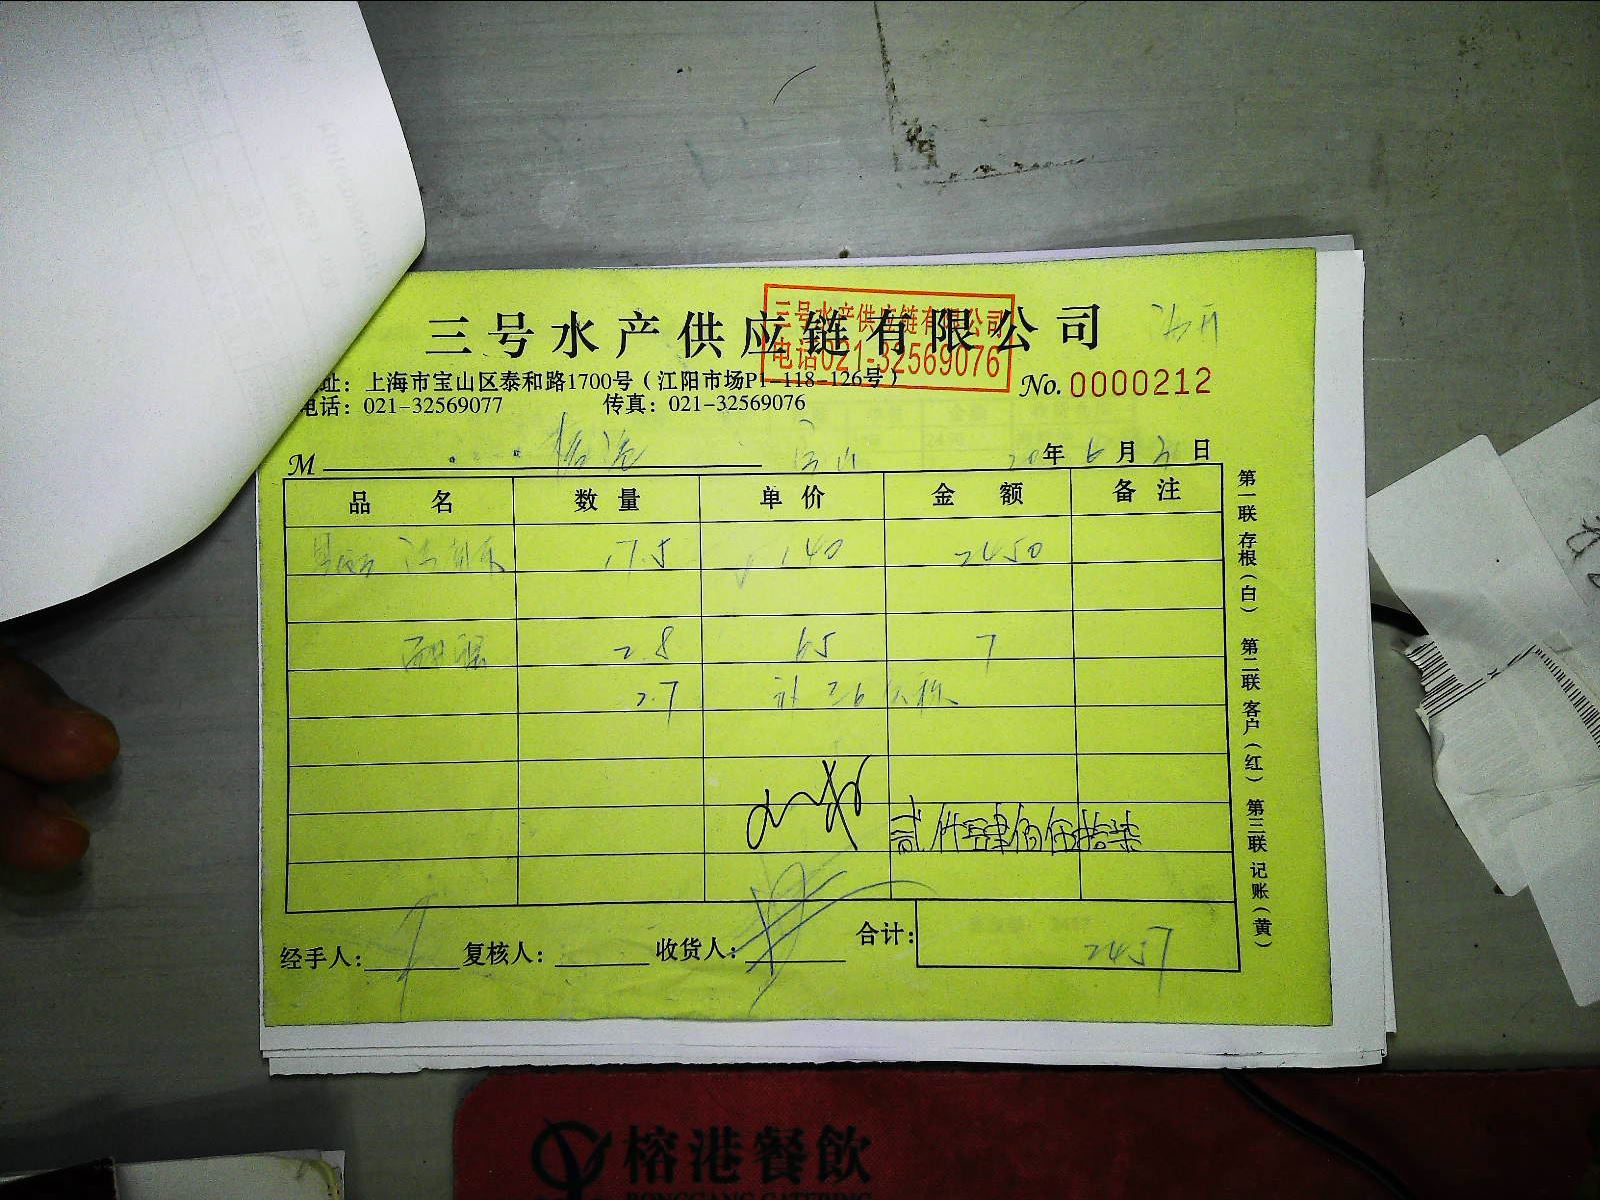 三号水产供应链有限公司
三号水产供应链有限公司
电话021-32569076
址：上海市宝山区泰和路1700号（江阳市场P1-118-126号）
No. 0000212
电话：021-32569077 传真：021-32569076
M 榕港 宝山 20年6月 日
品名 数量 单价 金额 备注
17.5 140 2450
2.8 65 7
2.7 补
贰仟肆佰伍拾柒
经手人： 复核人： 收货人： 合计：2457
第一联 存根（白） 第二联 客户（红） 第三联 记账（黄）
榕港餐飲
RONGGANG CATERING